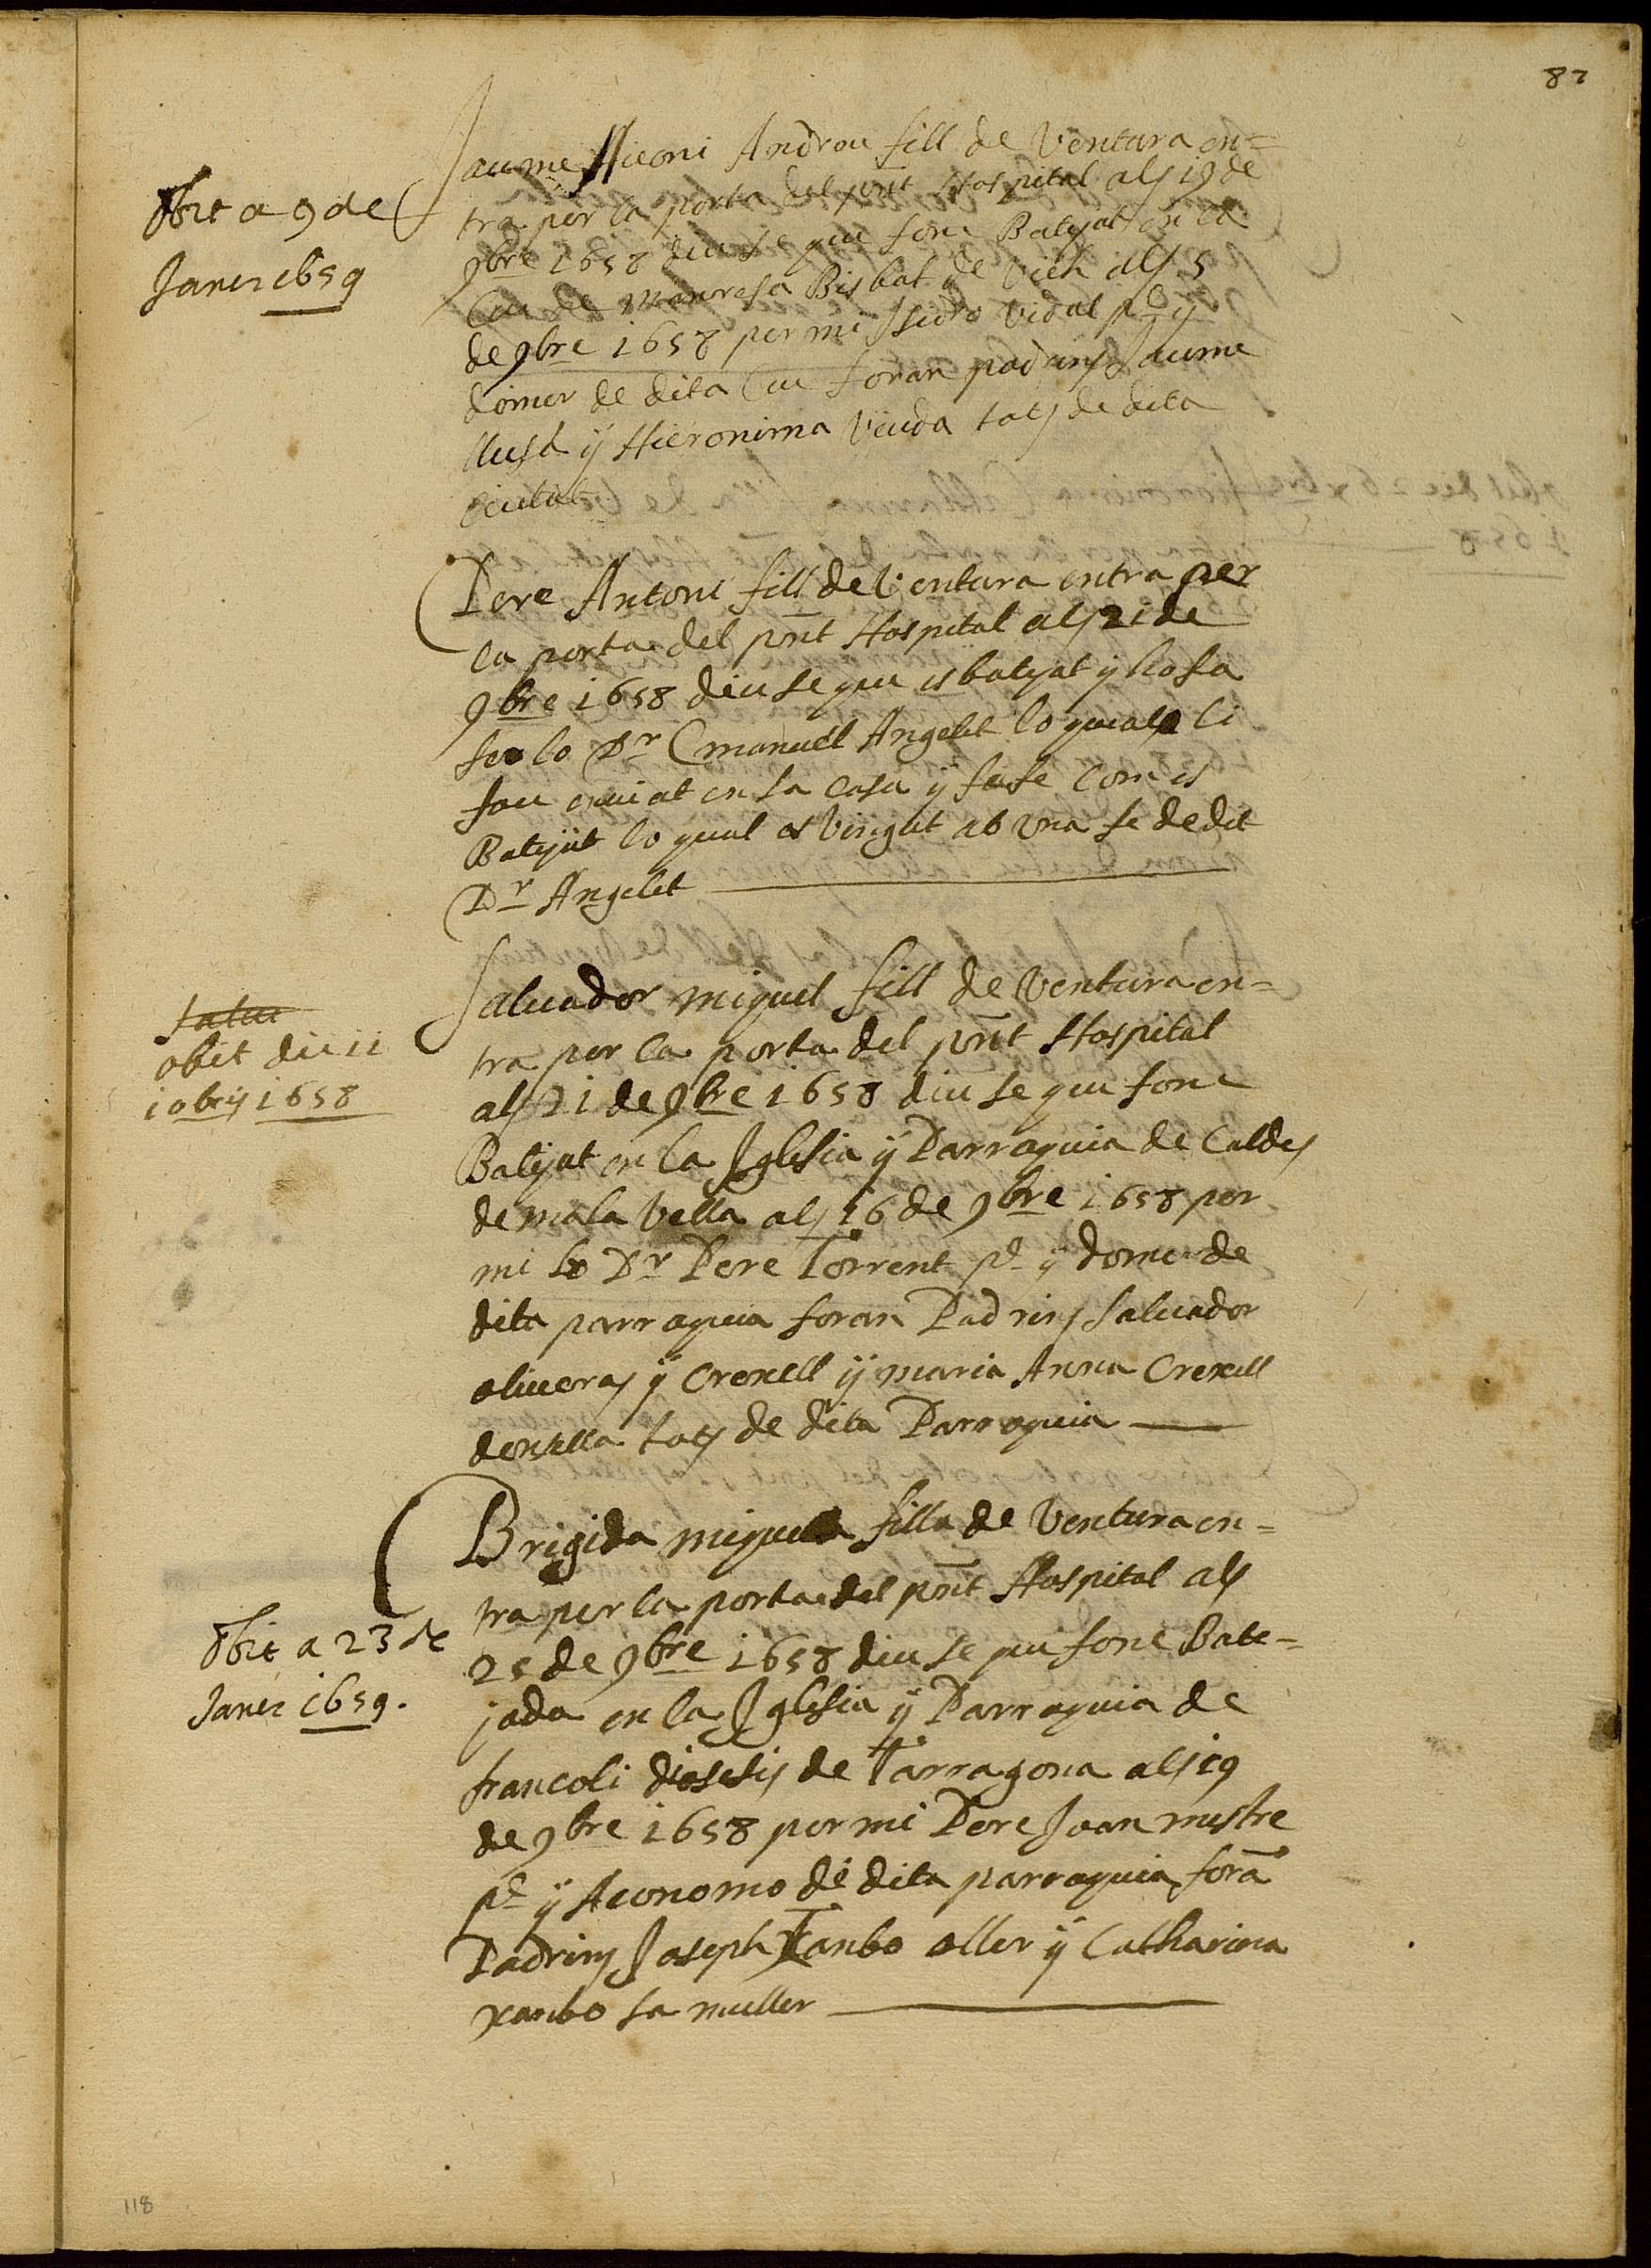 87
Jaume Hieoni Andreu fill de Ventura en=
tra per la porta del pnt Hospital als 19 de
9bre 1658 diu se que fonc Batejat en la
Ceu de manresa Bisbat de Vich als 5
de 9bre 1658 per mi Isidro Vidal pe y
domer de dita Ceu foran padrins Jaume
llusa y Hieronima Viuda tots de dita
ciutat
Obit a 9 de
Janer 1659
Pere Antoni fill de Ventura entra per
la porta del pnt Hospital als 21 de
9bre 1658 diu se que es batejat y ho sa
lo Dr Emanuel Angelet lo qual li
fou enviat en sa casa y fa fe com es
Batejat lo qual es vingut ab una fe de dit
Dr Angelet
Saluador miquel fill de Ventura en=
tra per la porta del pnt Hospital
als 21 de 9bre 1658 diu se que fonc
Batejat en la Iglesia y Parroquia de Caldes
de mala vella als 16 de 9bre 1658 per
mi lo Dr Pere Torrent pe y domer de
dita parroquia foran Padrins Saluador
oliueras y Crexell y maria Anna Crexell
donsella tots de dita Parroquia
obit die 11
10bris 1658
Brigida miquela filla de Ventura en=
tra per la porta del pnt Hospital als
25 de 9bre 1658 diu se que fonc Bate=
jada en la Iglesia y Parroquia de
francoli diosesis de Tarragona als 19
de 9bre 1658 per mi Pere Joan mestre
pe y Aconomo de dita parroquia forã
Padrins Joseph Xanbo oller y Catharina
xanbo sa muller
Obit a 23 de
Janer 1659.
118